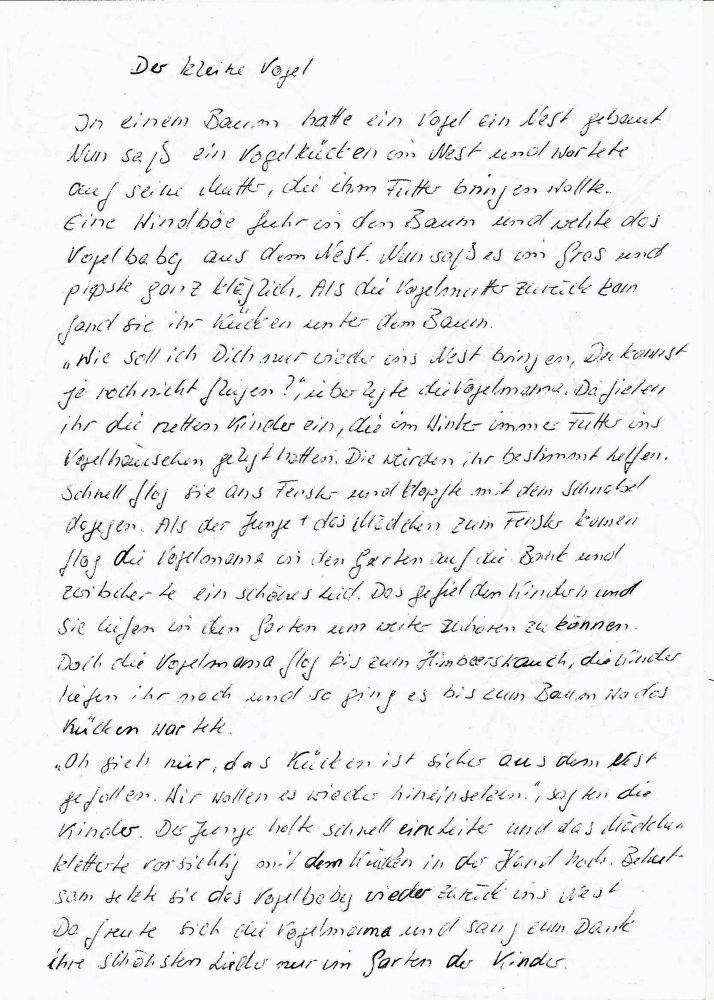 Der kleine Vogel
In einem Baum hatte ein Vogel ein Nest gebaut
Nun saß ein Vogelkücken im Nest und wartete
auf seine Mutter, die ihm Futter bringen wollte.
Eine Windböe fuhr in den Baum und wehte das
Vogelbaby aus dem Nest. Nun saß es im Gras und
piepste ganz kläglich. Als die Vogelmutter zurück kam
fand sie ihr Kücken unter dem Baum.
„Wie soll ich Dich nur wieder ins Nest bringen, Du kannst
ja noch nicht fliegen?", überlegte die Vogelmama. Da fielen
ihr die netten Kinder ein, die im Winter immer Futter ins
Vogelhäuschen gelegt hatten. Die würden ihr bestimmt helfen.
Schnell flog sie ans Fenster und klopfte mit dem Schnabel
dagegen. Als der Junge + das Mädchen zum Fenster kamen
flog die Vogelmama in den Garten auf die Bank und
zwitscherte ein schönes Lied. Das gefiel den Kindern und
sie liefen in den Garten um weiter zuhören zu können.
Doch die Vogelmama flog bis zum Himbeerstrauch, die Kinder
liefen ihr nach und so ging es bis zum Baum wo das
Kücken wartete.
„Oh sieh nur, das Kücken ist sicher aus dem Nest
gefallen. Wir wollen es wieder hineinsetzen.", sagten die
Kinder. Der Junge holte schnell eine Leiter und das Mädchen
kletterte vorsichtig mit dem Kücken in der Hand hoch. Behut-
sam setzte sie das Vogelbaby wieder zurück ins Nest
Da freute sich die Vogelmama und sang zum Dank
ihre schönsten Lieder nur im Garten der Kinder.